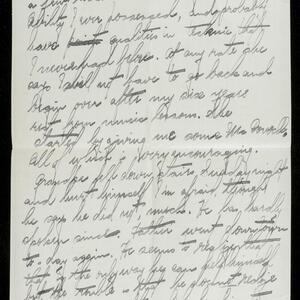 ability I ever possessed, and probably
have qualities in technic that
I never had before. At any rate she
says I shall not have to go back and
begin over after my six years
rest from music lessons. She
started by giving me some Mac Dowell.
All of which is very encouraging.
Grandpa fell down stairs Sunday night
and hurt himself I'm afraid though
he says he did not, much. He has hardly
spoken since. Father went down town
to-day again. He seems to realize that
that is the only way he can